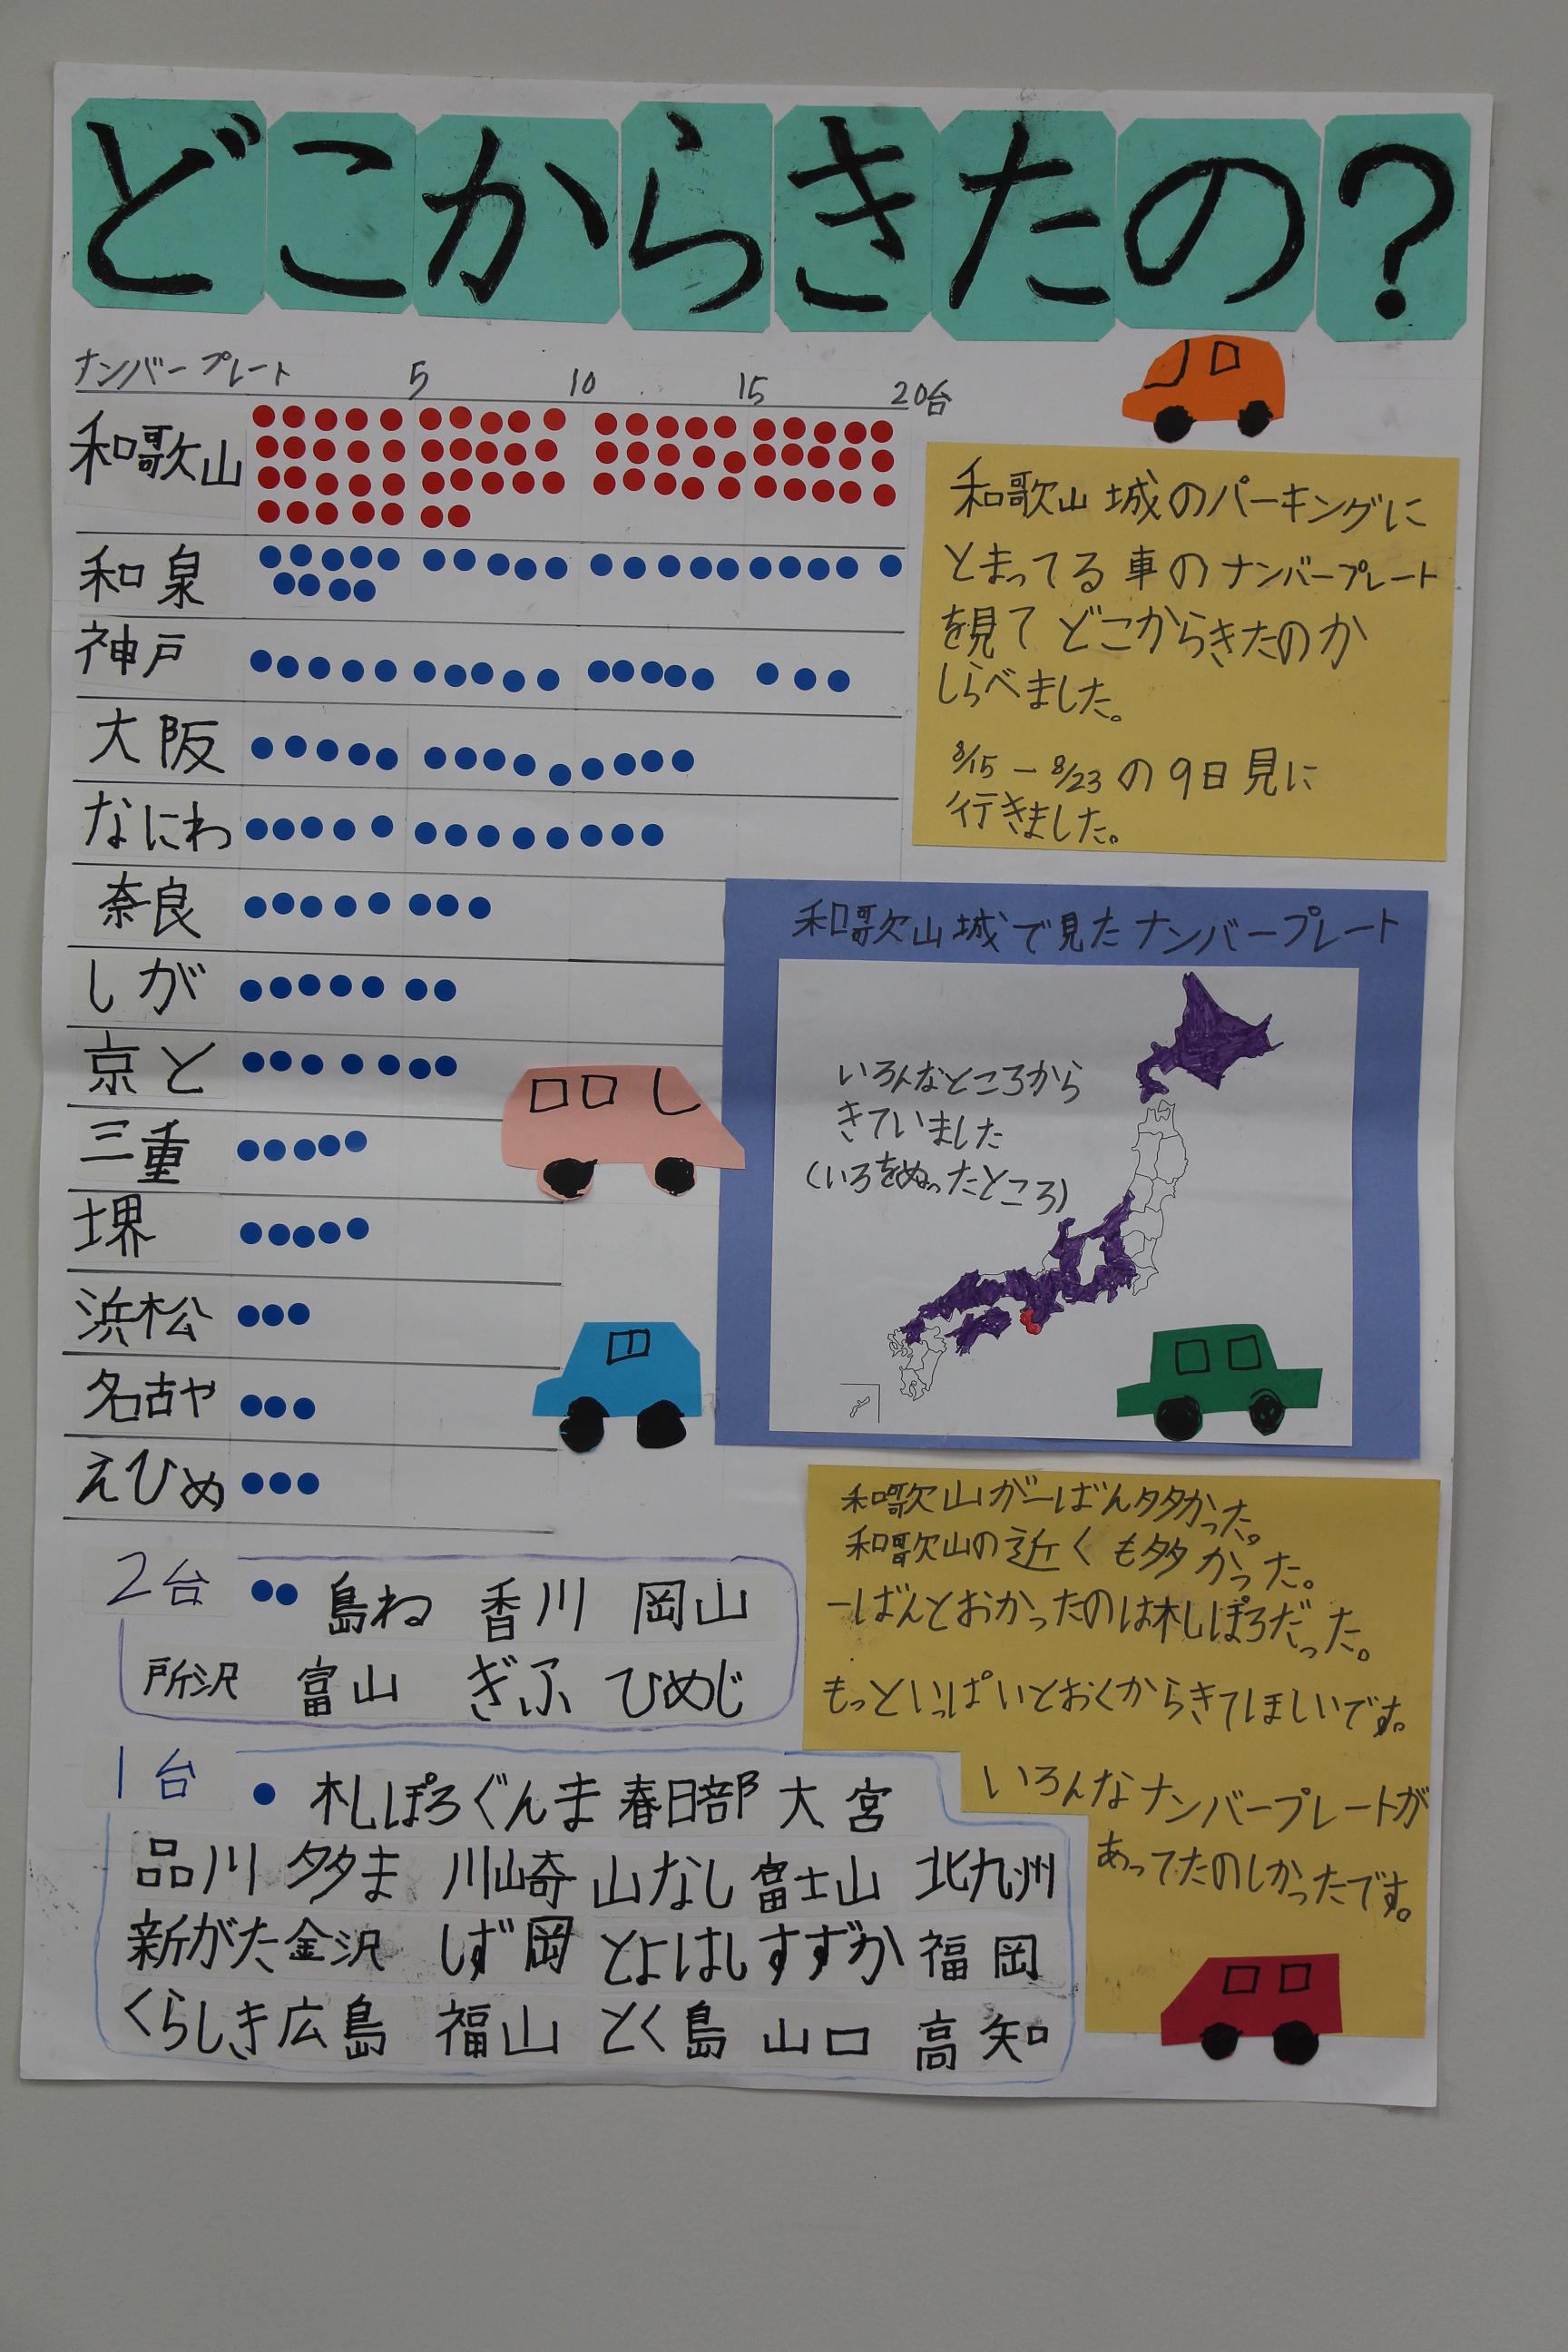 どこからきたの?
ナンバープレート 5 10 15 20台
和歌山
和泉
神戸
大阪
なにわ
奈良
しが
京と
三重
堺
浜松
名古や
えひめ
2台 島ね 香川 岡山
所沢 富山 ぎふ ひめじ
1台 札ぽろ ぐんま 春日部 大宮
品川 多ま 川崎 山なし 富士山 北九州
新がた 金沢 しず岡 とよはし すずか 福岡
くらしき 広島 福山 とく島 山口 高知
和歌山城のパーキングに
とまってる車のナンバープレート
を見てどこからきたのか
しらべました。
8/15-8/23の9日見に
行きました。
和歌山城で見たナンバープレート
いろんなところから
きていました
(いろをぬったところ)
和歌山が一ばん多かった。
和歌山の近くも多かった。
一ばんとおかったのは札ぽろだった。
もっといっぱいとおくからきてほしいです。
いろんなナンバープレートが
あってたのしかったです。